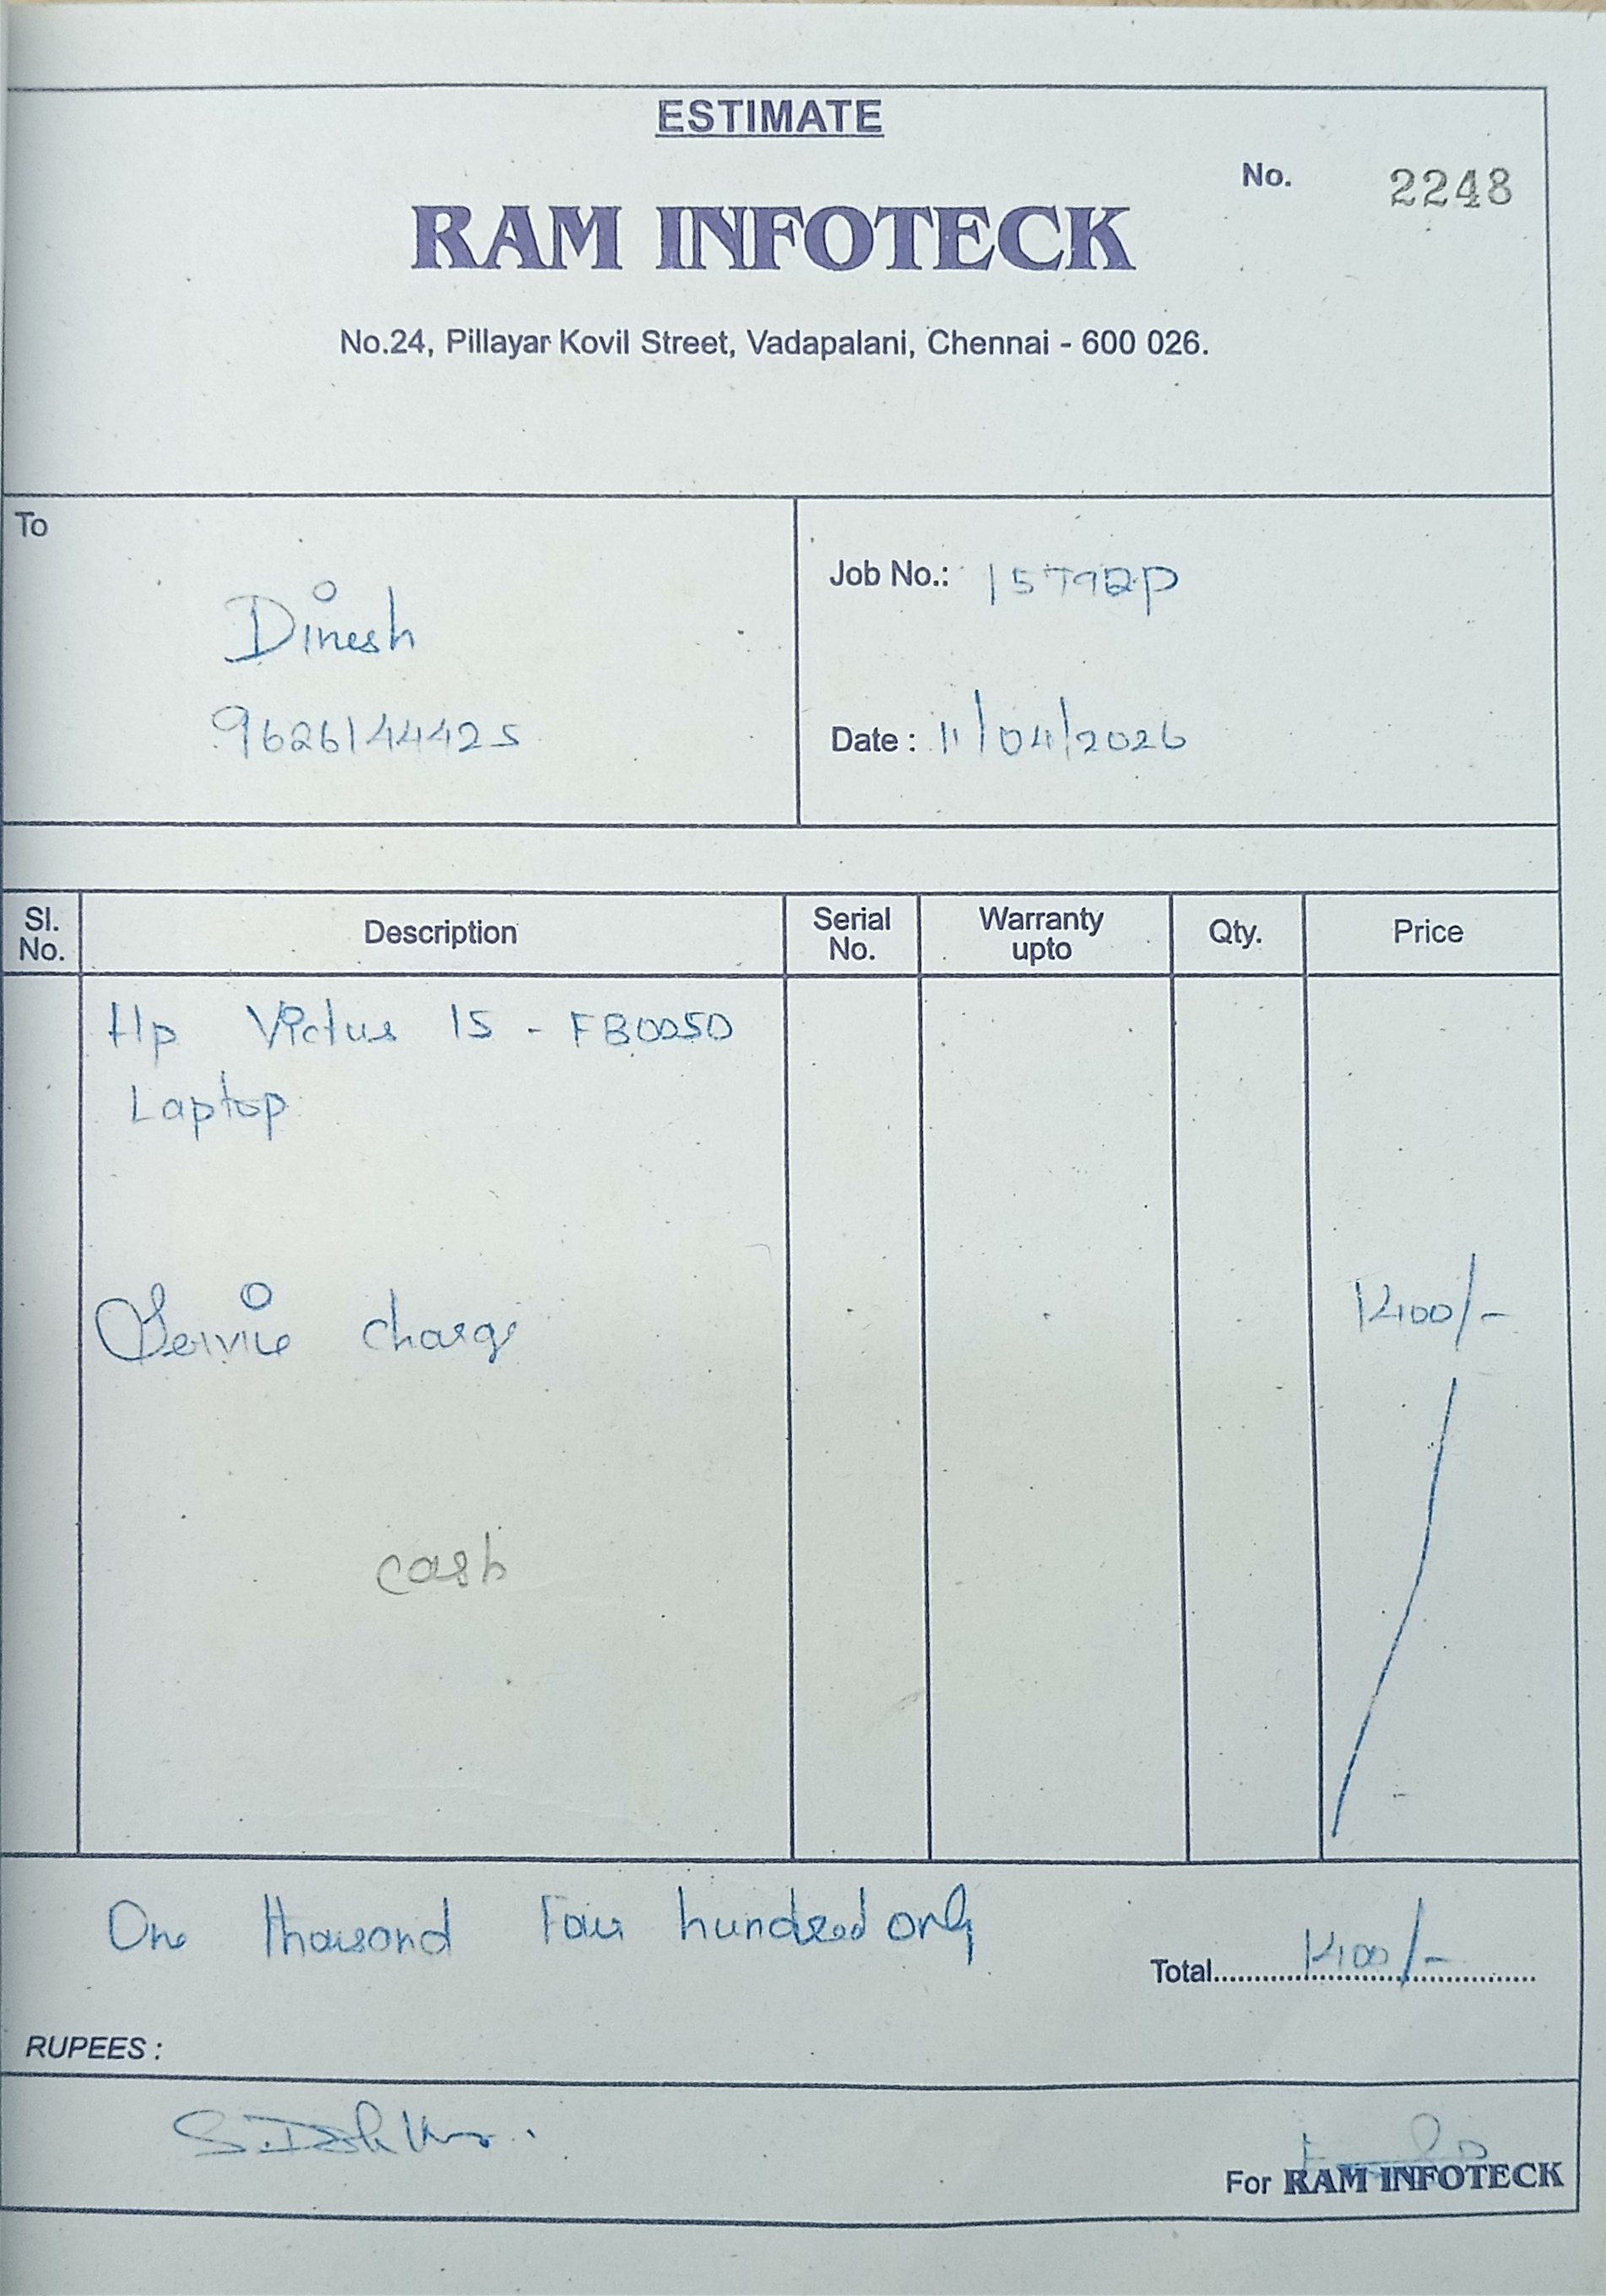 ESTIMATE
No. 2248
RAM INFOTECK
No.24, Pillayar Kovil Street, Vadapalani, Chennai - 600 026.
To
Dinesh
9626144425
Job No.:
Date : 11/04/2026
Sl. No. Description Serial No. Warranty upto Qty. Price
Hp Victus 15 - FB0050
Laptop
Service charge 1400/-
cash
One thousand Four hundred only
Total 1400/-
RUPEES :
For RAM INFOTECK